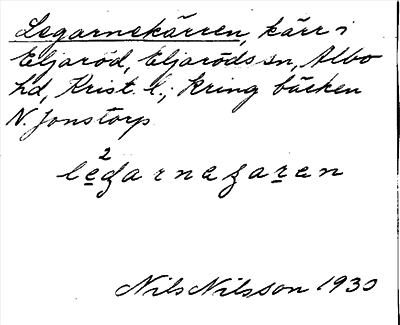 Legarnekärren, kärr i
Eljaröd, Eljaröds sn, Albo
hd, Krist. l.; kring bäcken
N. Jonstorp
2
Nils Nilsson 1930